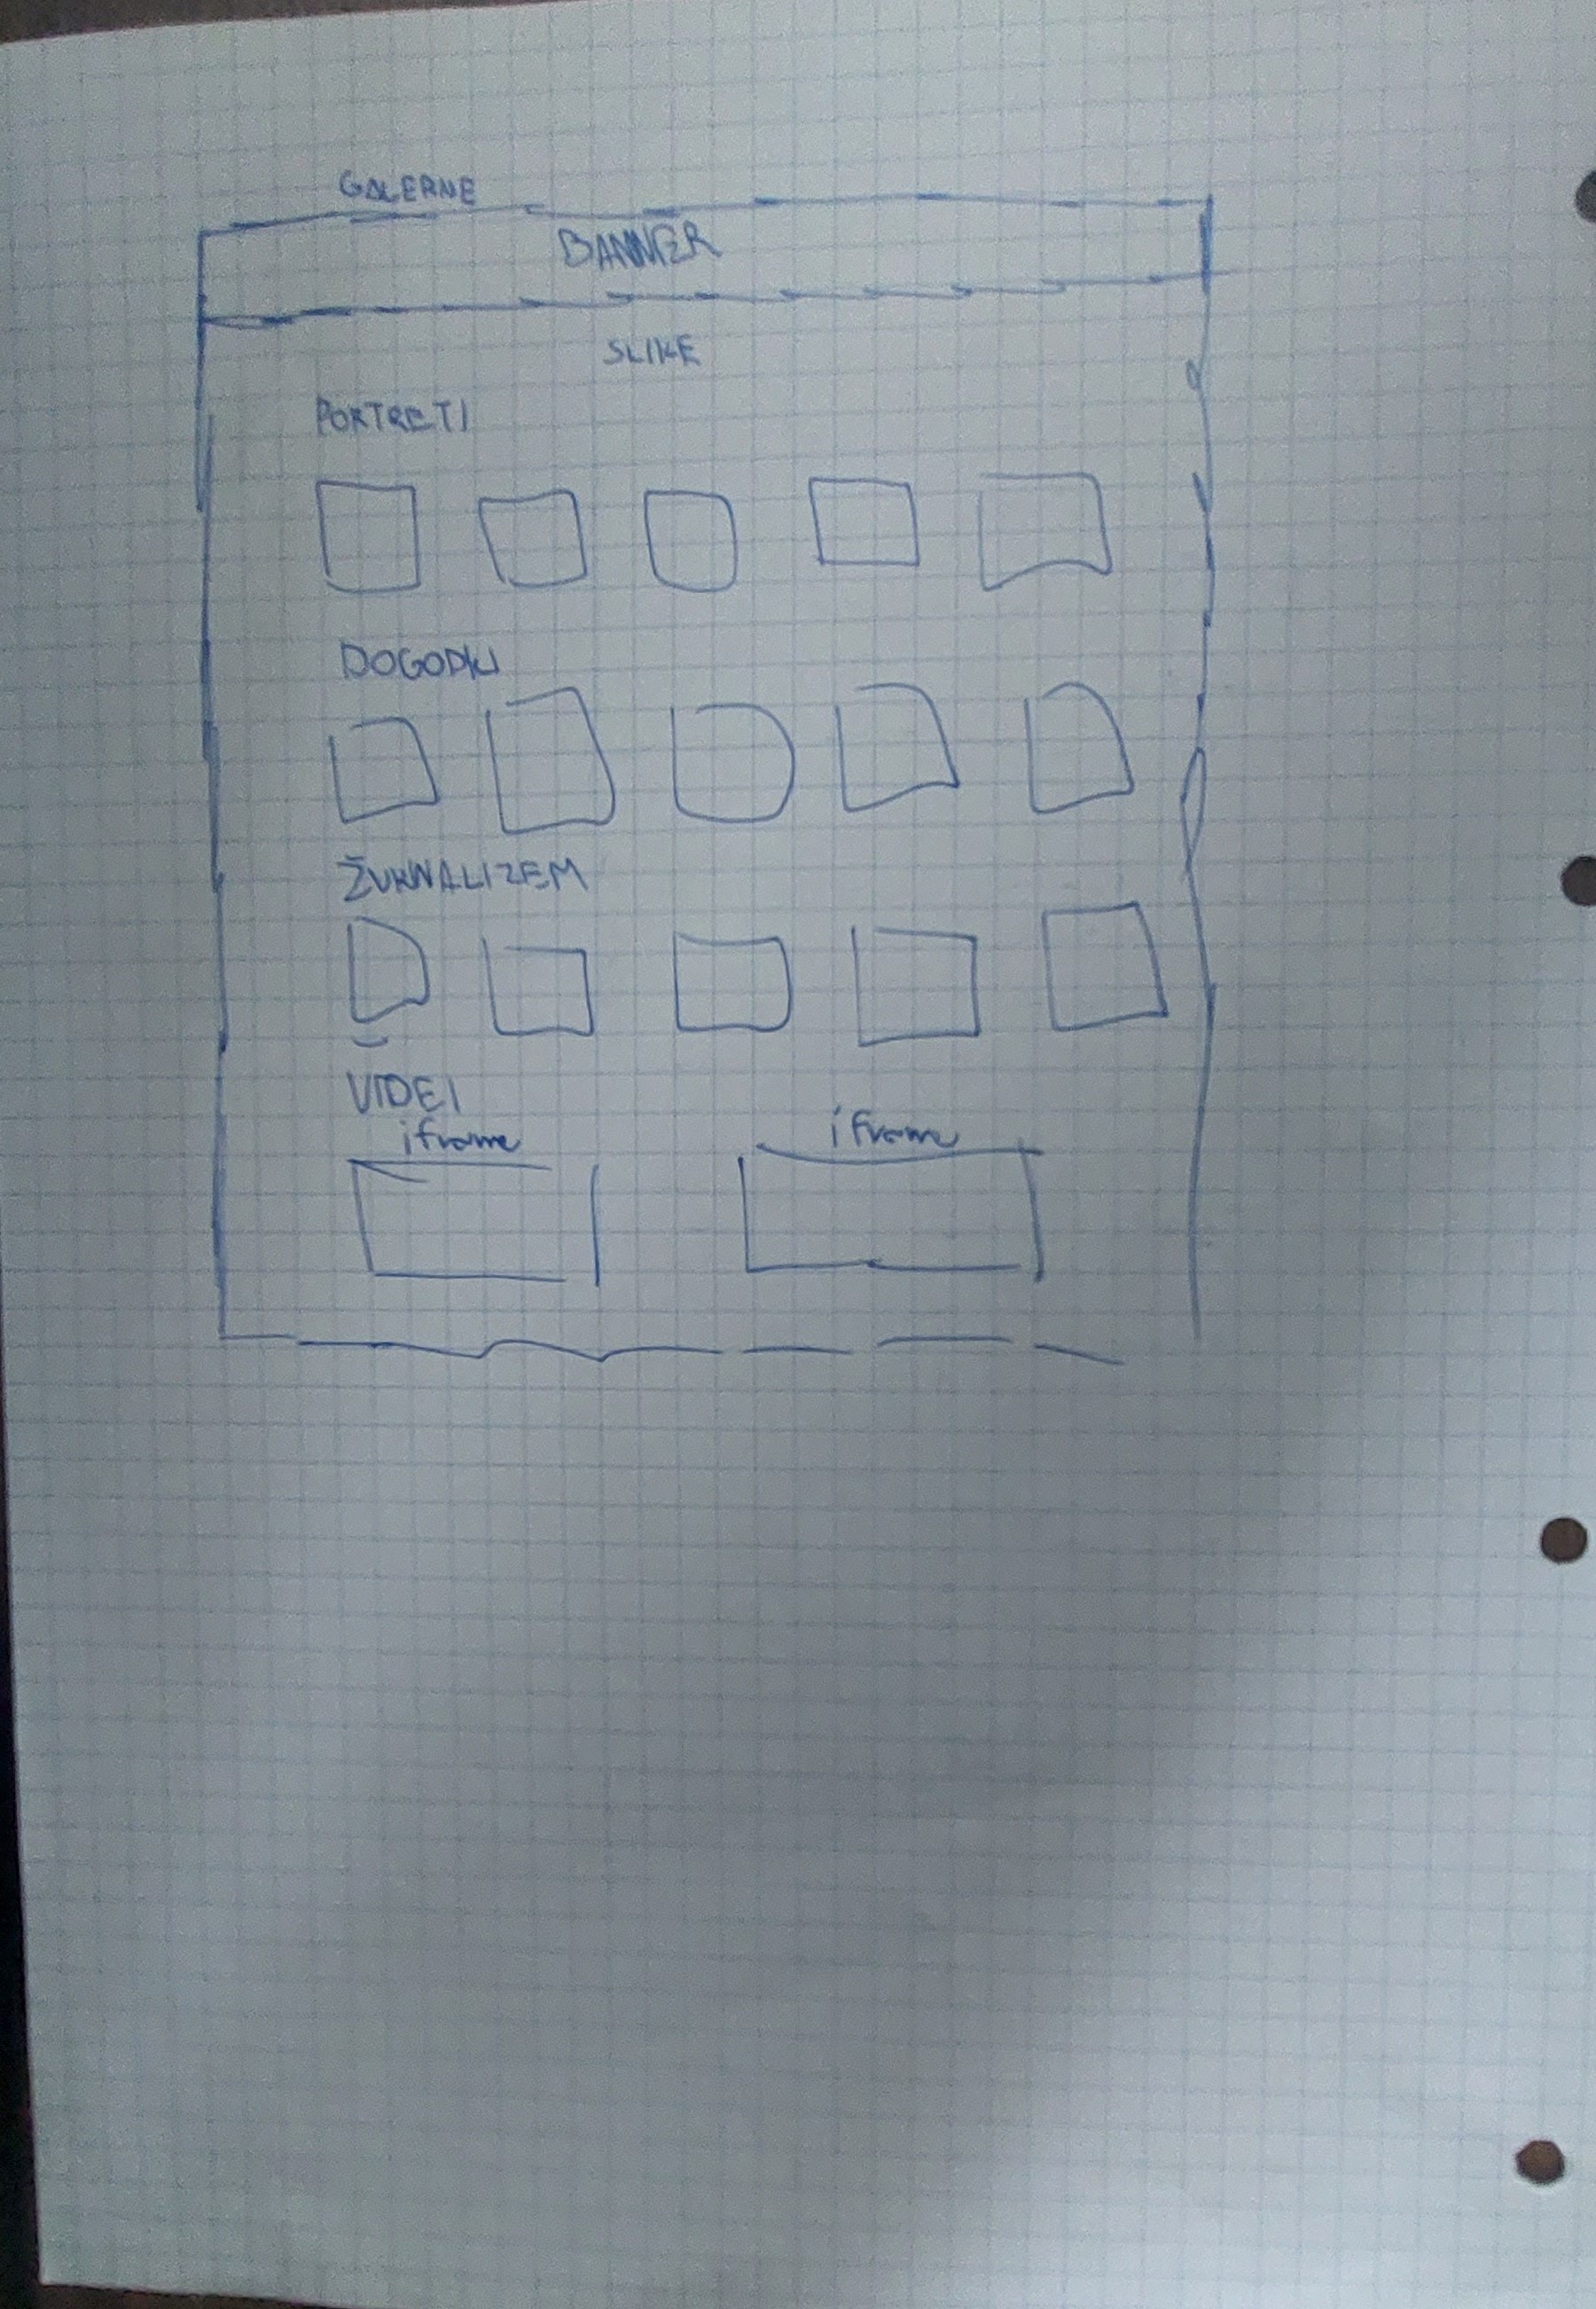 GALERIJE
BANNER
SLIKE
PORTRETI
DOGODKI
ŽURNALIZEM
VIDEI
iframe iframe